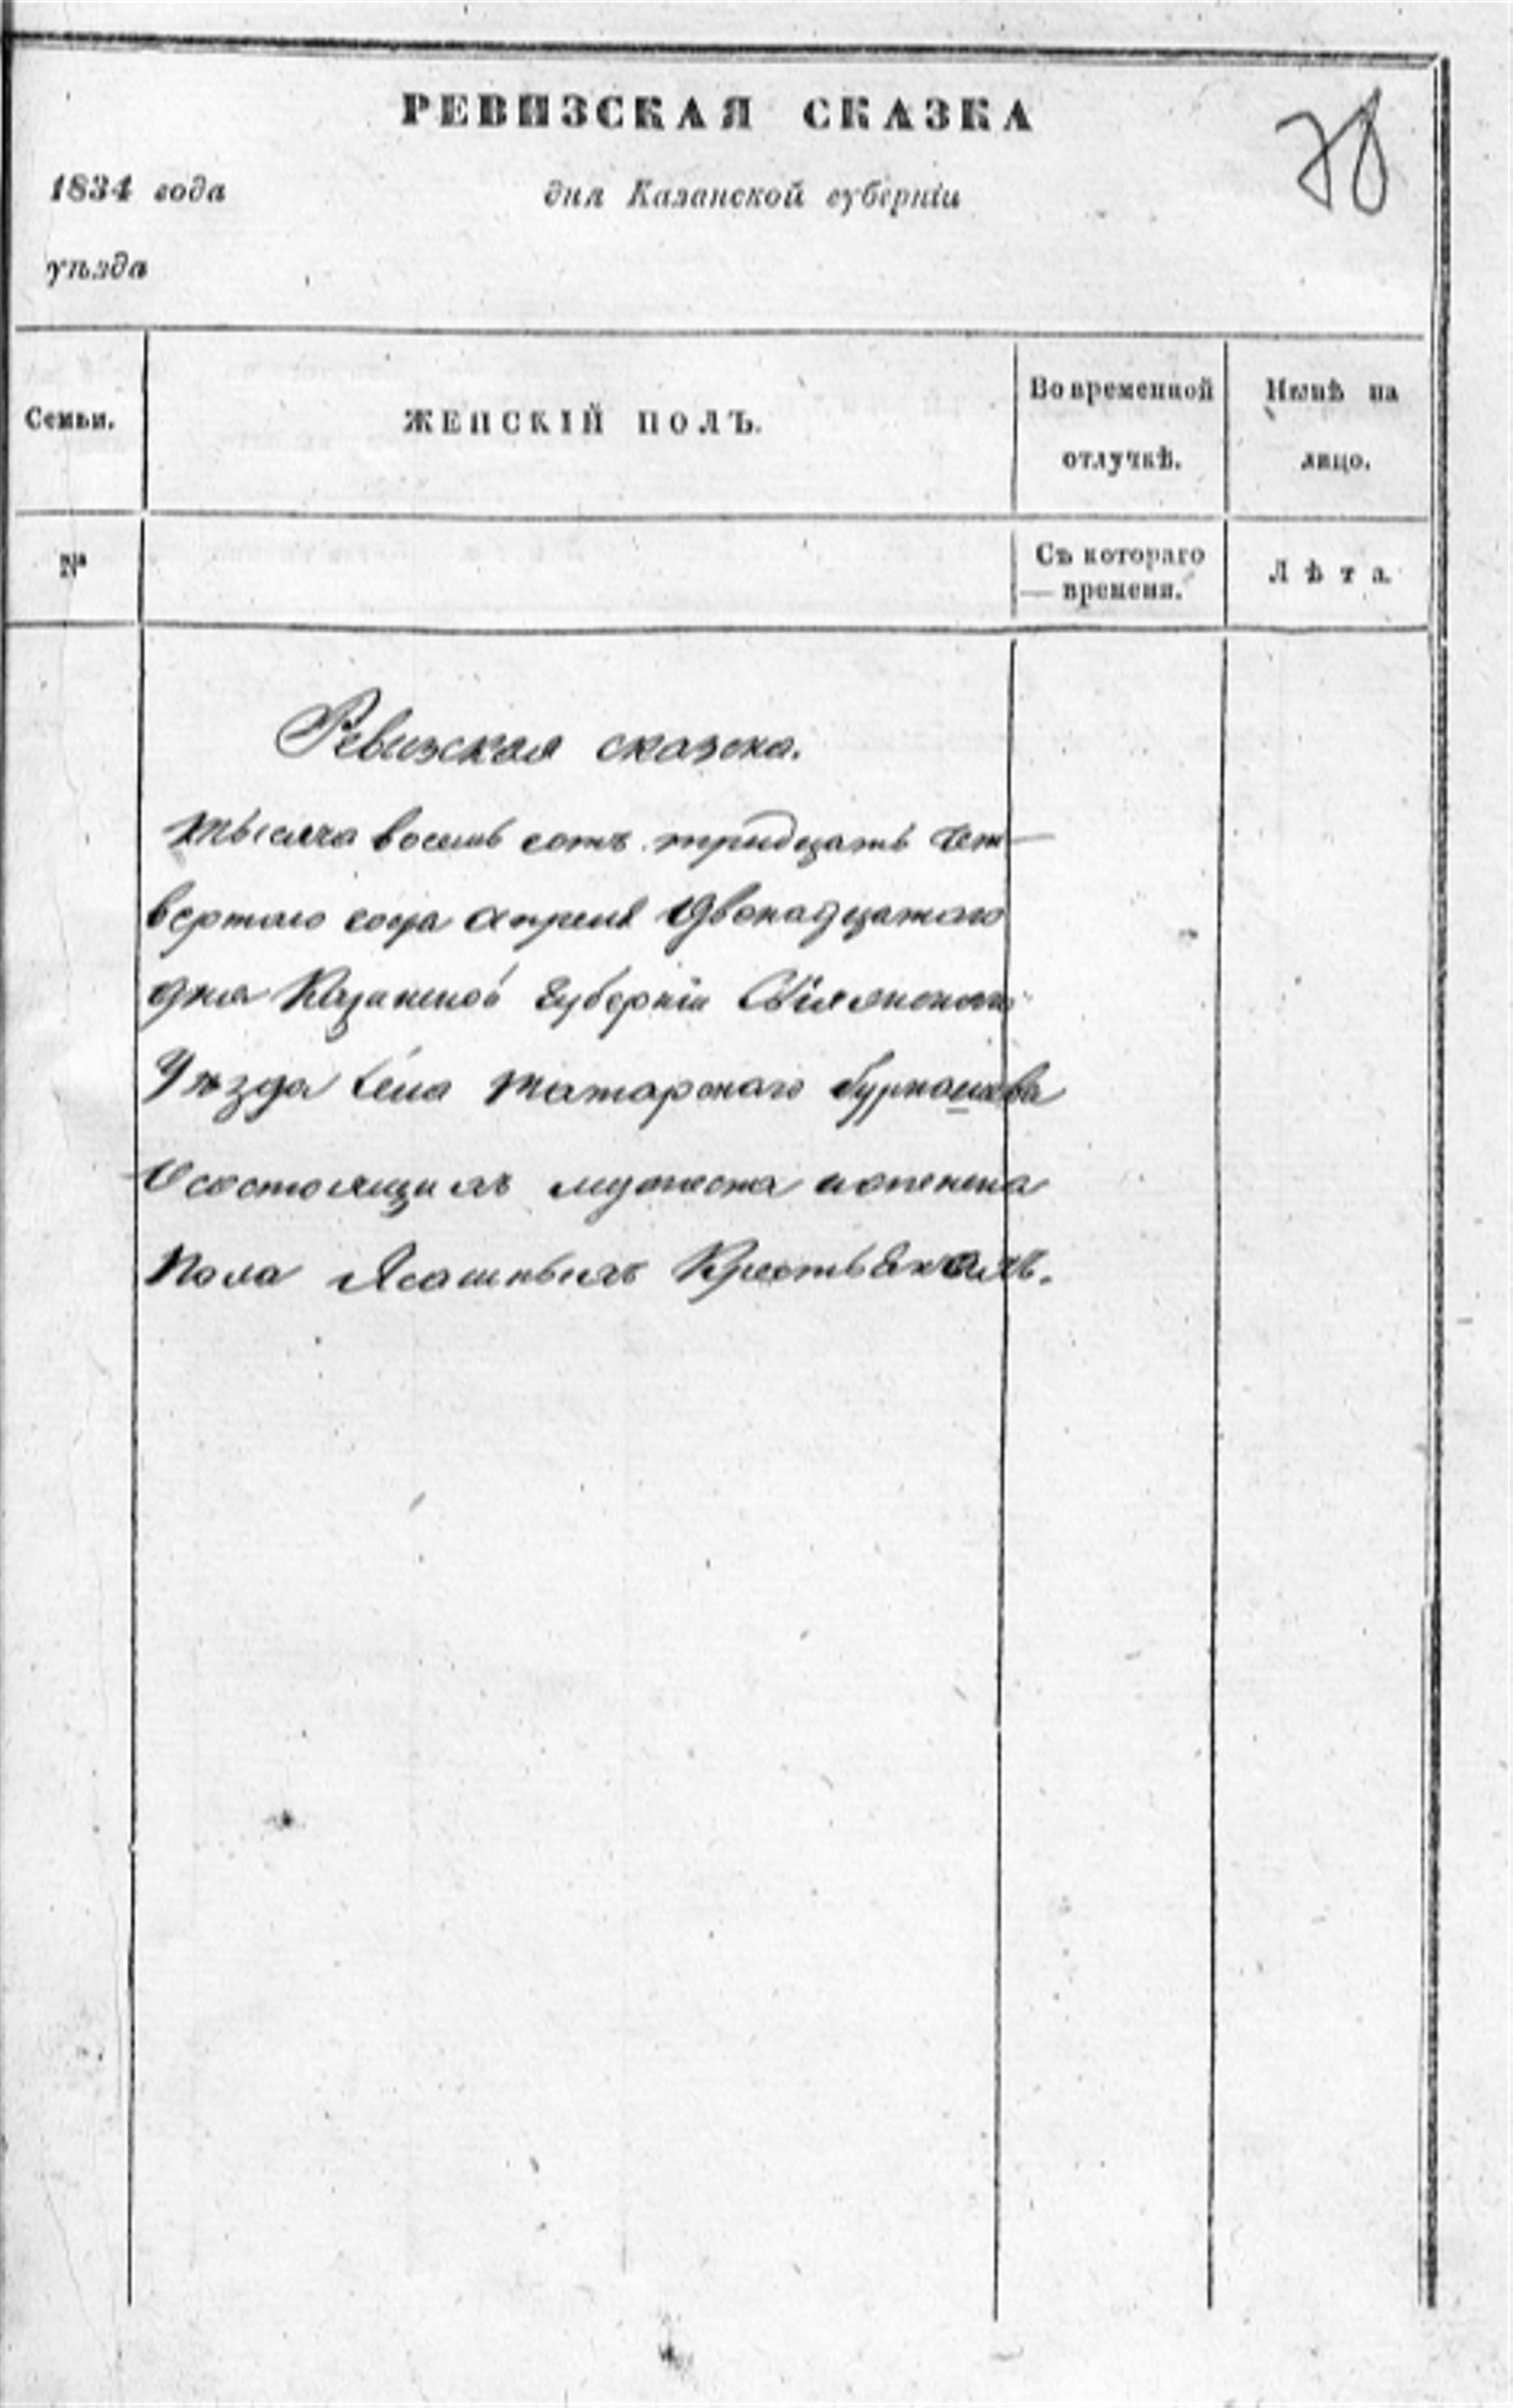 РЕВИЗСКАЯ СКАЗКА
1834 года дня Казанской губерніи
уѣзда
Семьи.
ЖЕНСКІЙ ПОЛЪ.
Во временной
отлучкѣ.
Нынѣ на
лицо.
№
Съ котораго
времени.
Лѣта.
Ревизская сказка.
тысяча восемь сотъ тридцать чет-
вертаго года апреля двенадцатаго
дня Казанской Губерніи Свіяжскаго
Уѣзда села татарскаго бурнашева
О состоящихъ мужеска и женска
Пола Ясашныхъ Крестьянахъ.